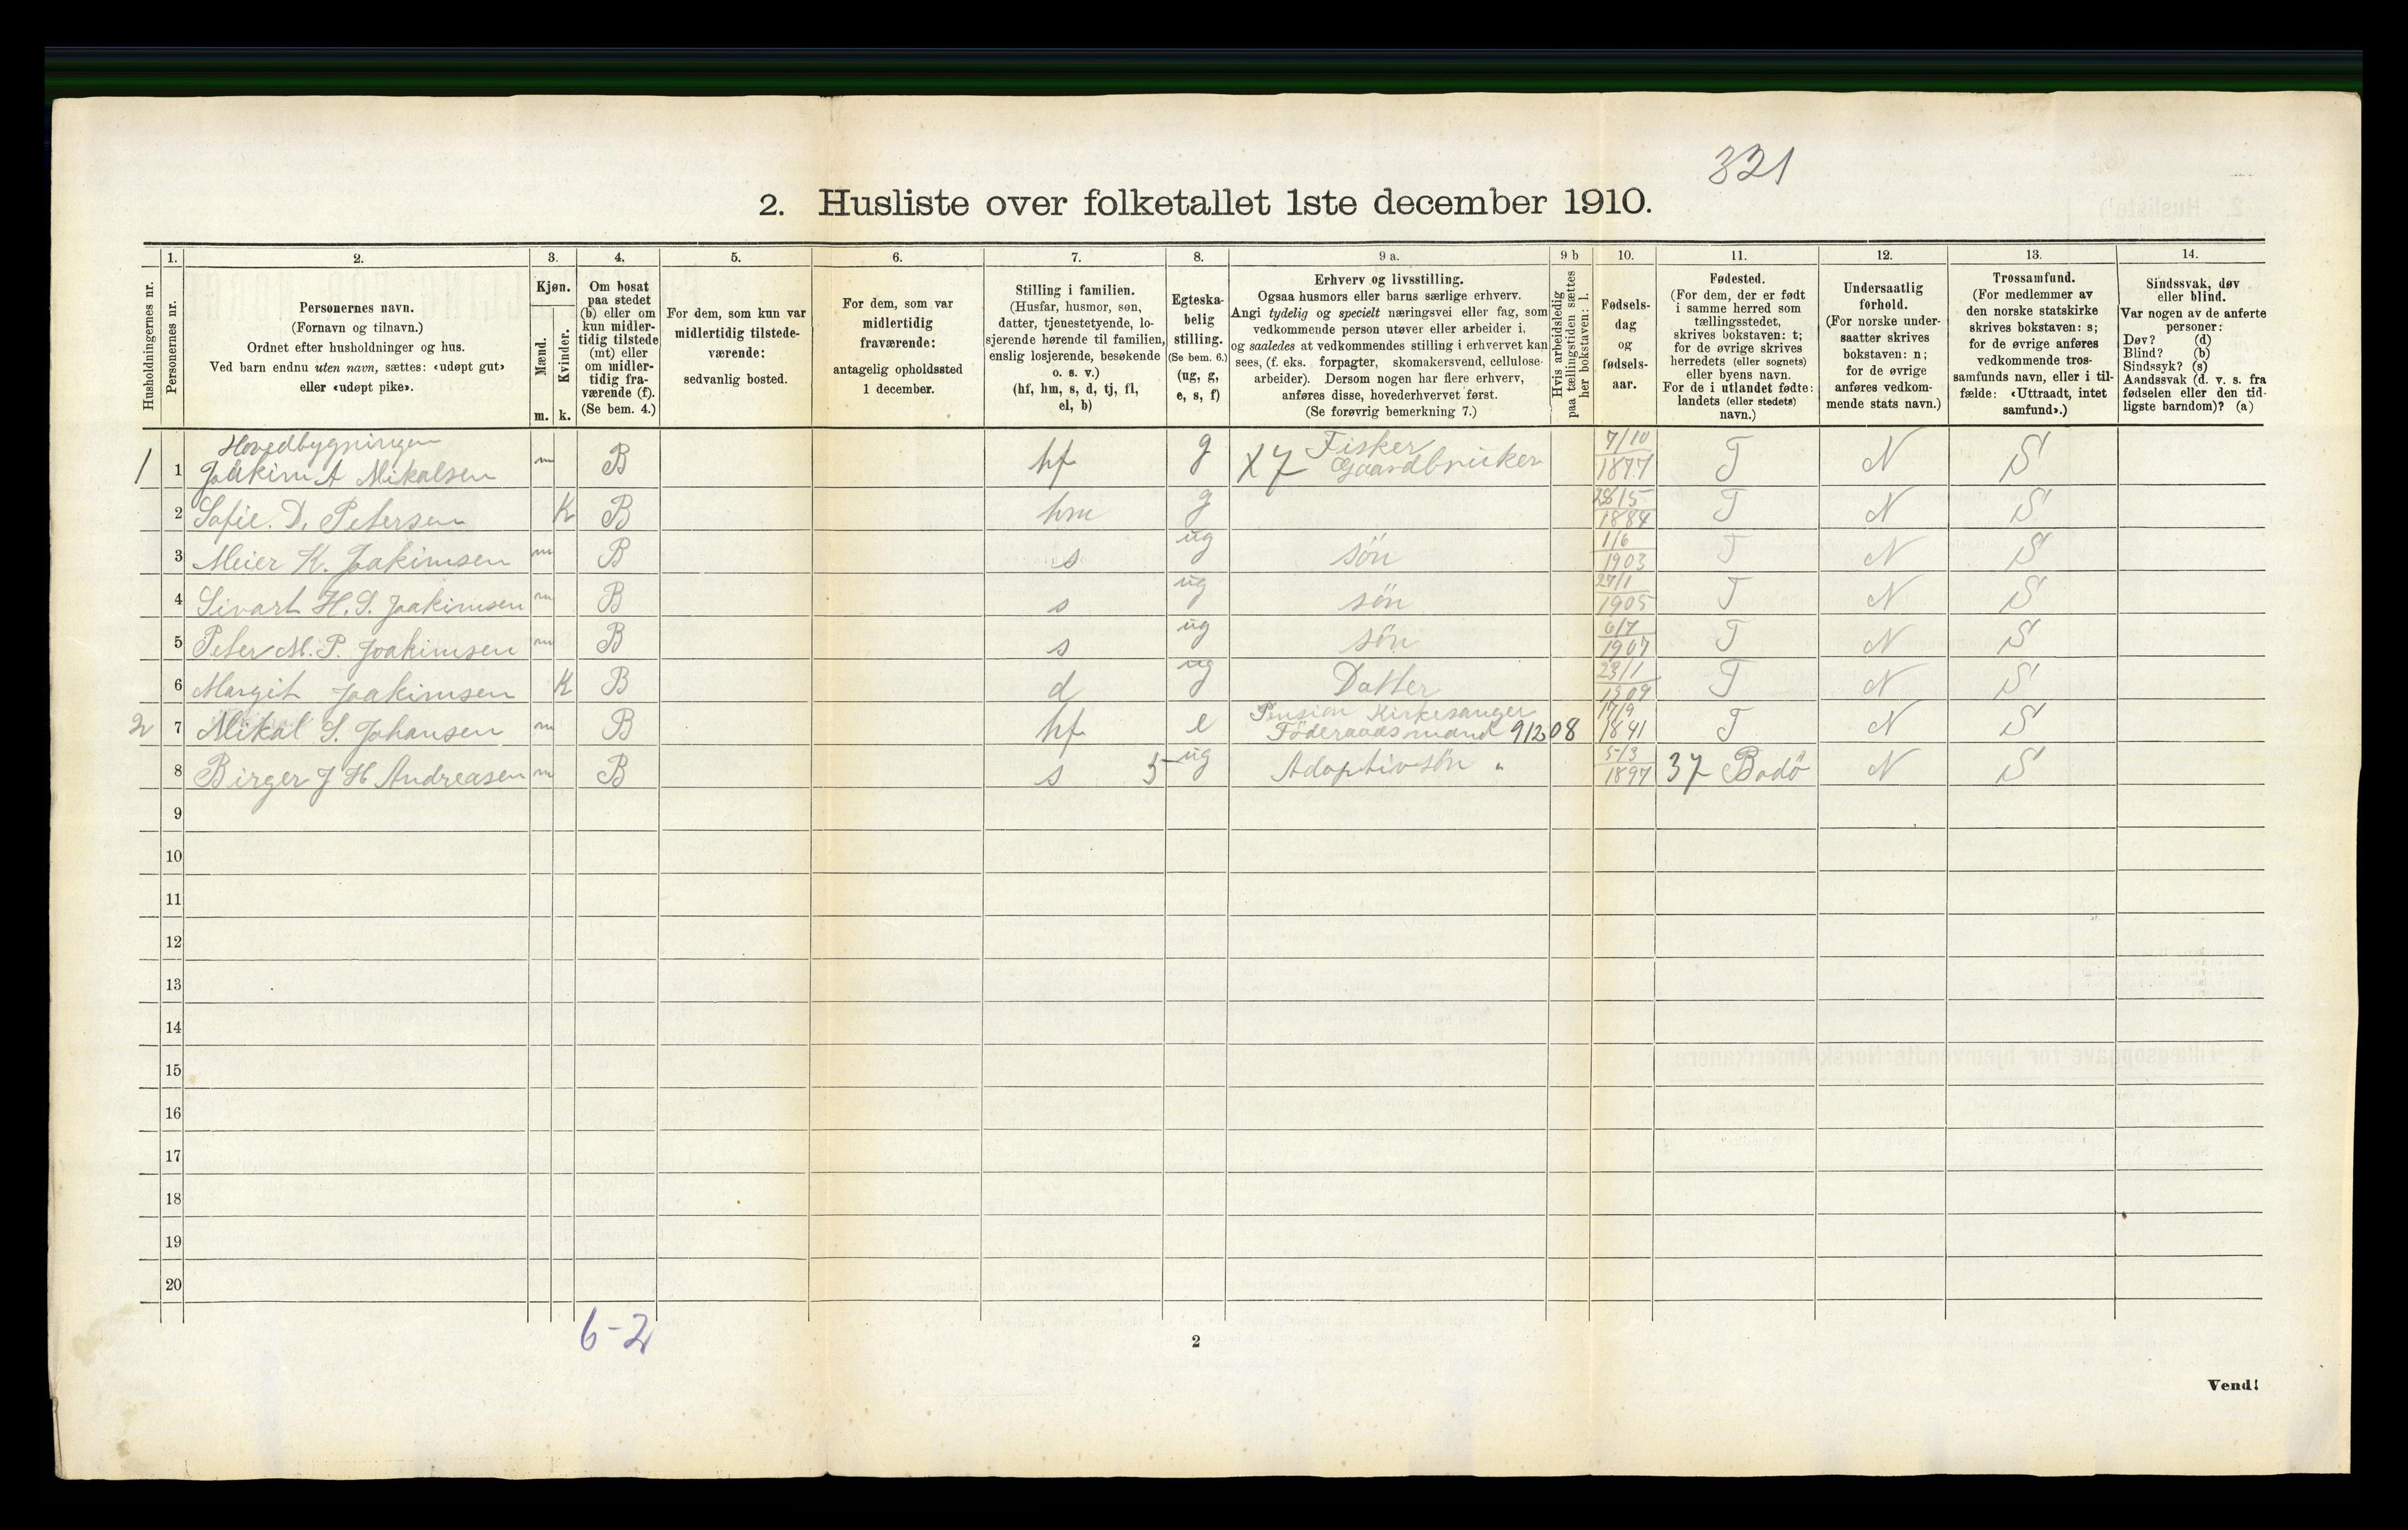 321
2. Husliste over folketallet 1ste december 1910.
Husholdningernes nr.
1. Personernes nr.
2. Personernes navn.
(Fornavn og tilnavn.)
Ordnet efter husholdninger og hus.
Ved barn endnu uten navn, sættes: «udøpt gut»
eller «udøpt pike».
3. Kjøn.
Mænd. m.
Kvinder. k.
4. Om bosat
paa stedet
(b) eller om
kun midler-
tidig tilstede
(mt) eller
om midler-
tidig fra-
værende (f).
(Se bem. 4.)
5. For dem, som kun var
midlertidig tilstede-
værende:
sedvanlig bosted.
6. For dem, som var
midlertidig
fraværende:
antagelig opholdssted
1 december.
7. Stilling i familien.
(Husfar, husmor, søn,
datter, tjenestetyende, lo-
sjerende hørende til familien,
enslig losjerende, besøkende
o. s. v.)
(hf, hm, s, d, tj, fl,
el, b)
8. Egteska-
belig
stilling.
(Se bem. 6.)
(ug, g,
e, s, f)
9 a. Erhverv og livsstilling.
Ogsaa husmors eller barns særlige erhverv.
Angi tydelig og specielt næringsvei eller fag, som
vedkommende person utøver eller arbeider i,
og saaledes at vedkommendes stilling i erhvervet kan
sees, (f. eks. forpagter, skomakersvend, cellulose-
arbeider). Dersom nogen har flere erhverv,
anføres disse, hovederhvervet først.
(Se forøvrig bemerkning 7.)
9 b Hvis arbeidsledig
paa tællingstiden sættes
her bokstaven: l.
10. Fødsels-
dag
og
fødsels-
aar.
11. Fødested.
(For dem, der er født
i samme herred som
tællingsstedet,
skrives bokstaven: t;
for de øvrige skrives
herredets (eller sognets)
eller byens navn.
For de i utlandet fødte:
landets (eller stedets)
navn.)
12. Undersaatlig
forhold.
(For norske under-
saatter skrives
bokstaven: n;
for de øvrige
anføres vedkom-
mende stats navn.)
13. Trossamfund.
(For medlemmer av
den norske statskirke
skrives bokstaven: s;
for de øvrige anføres
vedkommende tros-
samfunds navn, eller i til-
fælde: «Uttraadt, intet
samfund».)
14. Sindssvak, døv
eller blind.
Var nogen av de anførte
personer:
Døv? (d)
Blind? (b)
Sindssyk? (s)
Aandssvak (d. v. s. fra
fødselen eller den tid-
ligste barndom)? (a)
Hovedbygningen
1 1 Joakim A Mikalsen m B hf g X7 Fisker Gaardbruker 7/10 1877 T N S
2 Sofie. D. Petersen K B hm g 28/5 1884 T N S
3 Meier K. Joakimsen m B s ug sön 1/6 1903 T N S
4 Sivart H. S. Joakimsen m B s ug sön 27/1 1905 T N S
5 Peter M. P. Joakimsen m B s ug sön 6/7 1907 T N S
6 Margit Joakimsen K B d ug Datter 23/1 1909 T N S
2 7 Mikal S. Johansen m B hf e Pension Kirkesanger Föderaadsmand 91208 17/9 1841 T N S
8 Birger J H Andreasen m B s 5 ug Adoptivsön " 5/3 1897 37 Bodö N S
9
10
11
12
13
14
15
16
17
18
19
20
6-2
2
Vend!